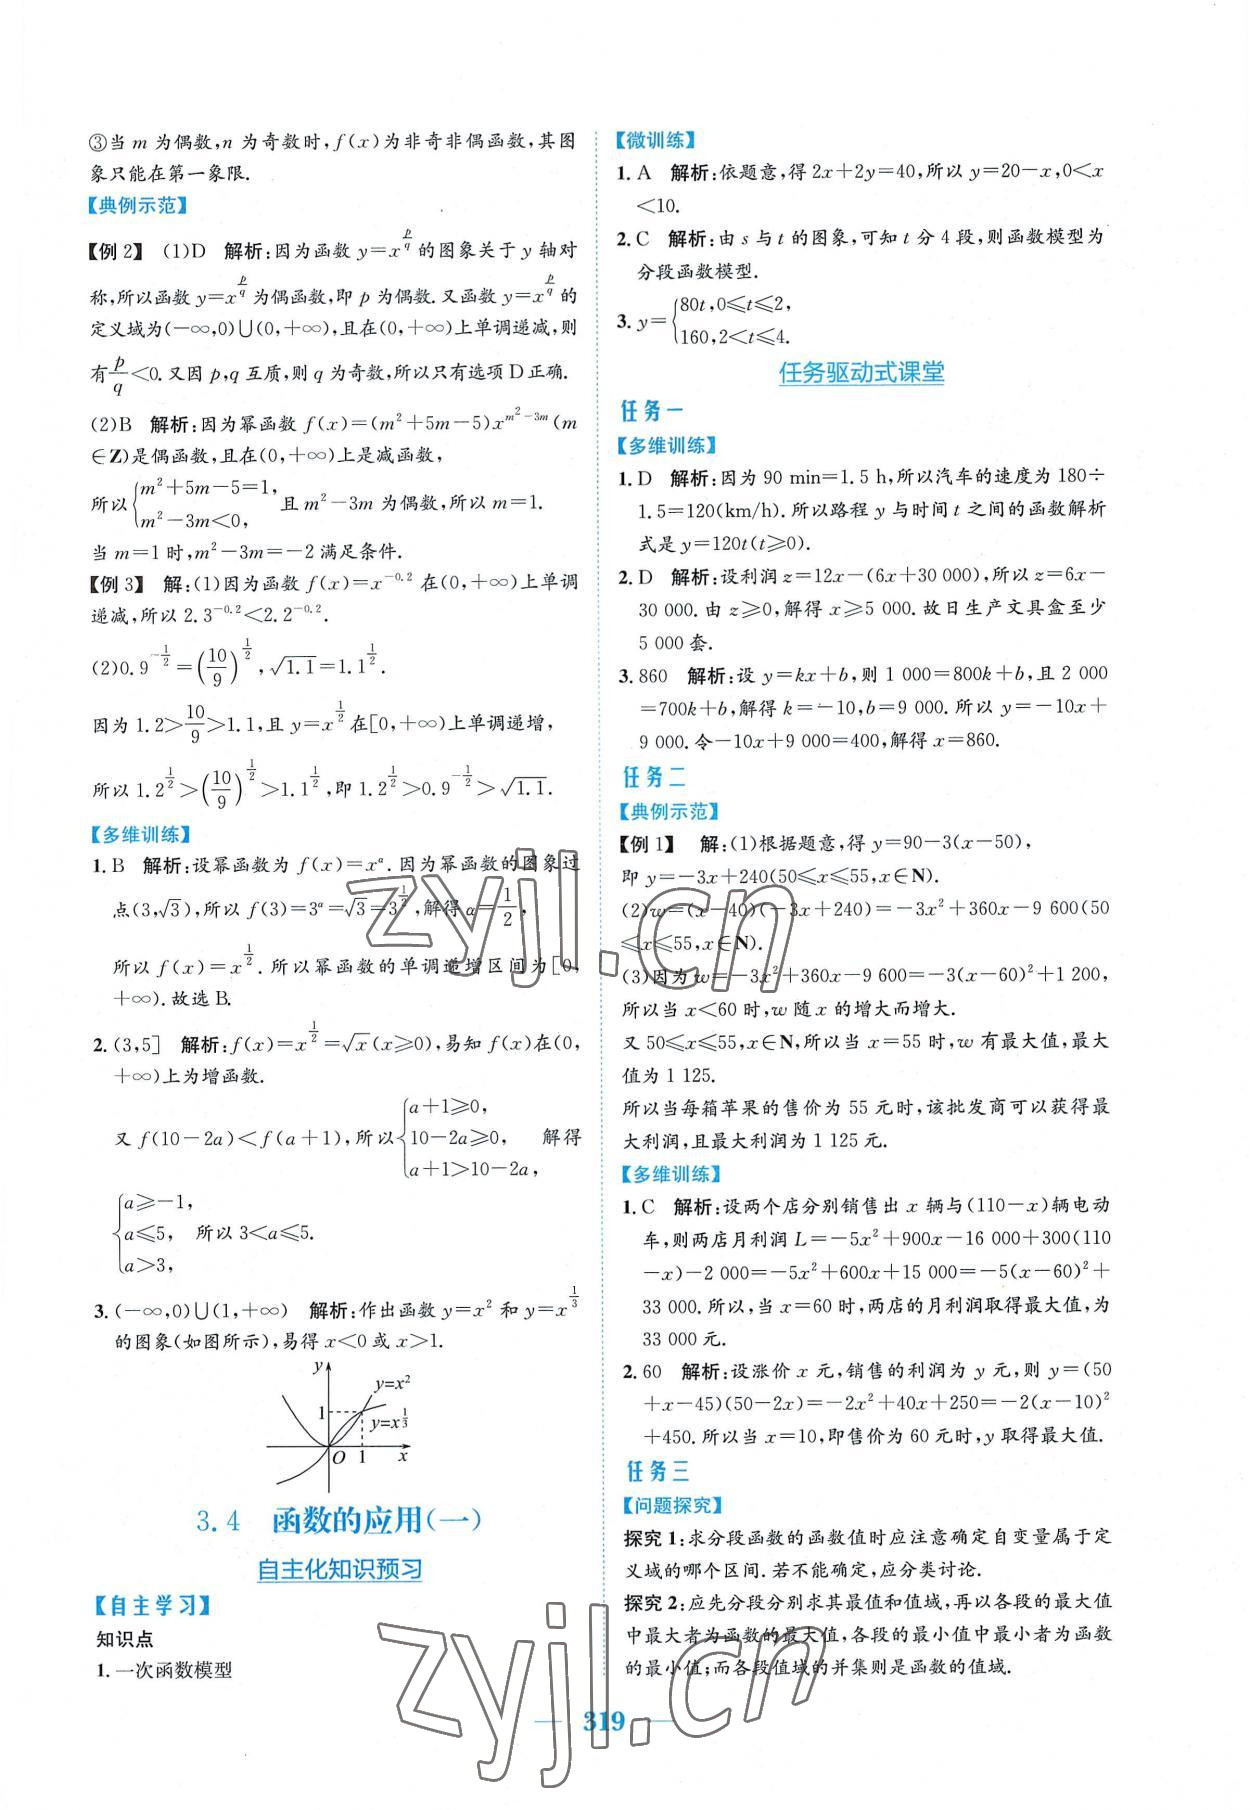 ③当 m 为偶数,n 为奇数时,f(x)为非奇非偶函数,其图
象只能在第一象限.
【典例示范】
【例2】 (1)D 解析:因为函数 y=x^{p/q} 的图象关于 y 轴对
称,所以函数 y=x^{p/q} 为偶函数,即 p 为偶数.又函数 y=x^{p/q} 的
定义域为(-∞,0)∪(0,+∞),且在(0,+∞)上单调递减,则
有 p/q<0.又因 p,q 互质,则 q 为奇数,所以只有选项 D 正确.
(2)B 解析:因为幂函数 f(x)=(m²+5m-5)x^{m²-3m}(m
∈Z)是偶函数,且在(0,+∞)上是减函数,
所以{m²+5m-5=1, m²-3m<0, 且 m²-3m 为偶数,所以 m=1.
当 m=1 时,m²-3m=-2 满足条件.
【例3】 解:(1)因为函数 f(x)=x^{-0.2} 在(0,+∞)上单调
递减,所以 2.3^{-0.2}<2.2^{-0.2}.
(2)0.9^{-1/2}=(10/9)^{1/2},√1.1=1.1^{1/2}.
因为 1.2>10/9>1.1,且 y=x^{1/2} 在[0,+∞)上单调递增,
所以 1.2^{1/2}>(10/9)^{1/2}>1.1^{1/2},即 1.2^{1/2}>0.9^{-1/2}>√1.1.
【多维训练】
1.B 解析:设幂函数为 f(x)=x^α.因为幂函数的图象过
点(3,√3),所以 f(3)=3^α=√3=3^{1/2},解得 α=1/2,
所以 f(x)=x^{1/2}.所以幂函数的单调递增区间为[0,
+∞).故选 B.
2.(3,5] 解析:f(x)=x^{1/2}=√x(x≥0),易知 f(x)在(0,
+∞)上为增函数.
又 f(10-2a)<f(a+1),所以{a+1≥0, 10-2a≥0, a+1>10-2a, 解得
{a≥-1, a≤5, a>3, 所以 3<a≤5.
3.(-∞,0)∪(1,+∞) 解析:作出函数 y=x² 和 y=x^{1/3}
的图象(如图所示),易得 x<0 或 x>1.
y
y=x²
1
y=x^{1/3}
O 1 x
3.4 函数的应用(一)
自主化知识预习
【自主学习】
知识点
1.一次函数模型
【微训练】
1.A 解析:依题意,得 2x+2y=40,所以 y=20-x,0<x
<10.
2.C 解析:由 s 与 t 的图象,可知 t 分 4 段,则函数模型为
分段函数模型.
3.y={80t,0≤t≤2, 160,2<t≤4.
任务驱动式课堂
任务一
【多维训练】
1.D 解析:因为 90 min=1.5 h,所以汽车的速度为 180÷
1.5=120(km/h).所以路程 y 与时间 t 之间的函数解析
式是 y=120t(t≥0).
2.D 解析:设利润 z=12x-(6x+30 000),所以 z=6x-
30 000.由 z≥0,解得 x≥5 000.故日生产文具盒至少
5 000 套.
3.860 解析:设 y=kx+b,则 1 000=800k+b,且 2 000
=700k+b,解得 k=-10,b=9 000.所以 y=-10x+
9 000.令-10x+9 000=400,解得 x=860.
任务二
【典例示范】
【例1】 解:(1)根据题意,得 y=90-3(x-50),
即 y=-3x+240(50≤x≤55,x∈N).
(2)w=(x-40)(-3x+240)=-3x²+360x-9 600(50
≤x≤55,x∈N).
(3)因为 w=-3x²+360x-9 600=-3(x-60)²+1 200,
所以当 x<60 时,w 随 x 的增大而增大.
又 50≤x≤55,x∈N,所以当 x=55 时,w 有最大值,最大
值为 1 125.
所以当每箱苹果的售价为 55 元时,该批发商可以获得最
大利润,且最大利润为 1 125 元.
【多维训练】
1.C 解析:设两个店分别销售出 x 辆与(110-x)辆电动
车,则两店月利润 L=-5x²+900x-16 000+300(110
-x)-2 000=-5x²+600x+15 000=-5(x-60)²+
33 000.所以,当 x=60 时,两店的月利润取得最大值,为
33 000 元.
2.60 解析:设涨价 x 元,销售的利润为 y 元,则 y=(50
+x-45)(50-2x)=-2x²+40x+250=-2(x-10)²
+450.所以当 x=10,即售价为 60 元时,y 取得最大值.
任务三
【问题探究】
探究 1:求分段函数的函数值时应注意确定自变量属于定
义域的哪个区间.若不能确定,应分类讨论.
探究 2:应先分段分别求其最值和值域,再以各段的最大值
中最大者为函数的最大值,各段的最小值中最小者为函数
的最小值;而各段值域的并集则是函数的值域.
zyjl.cn
zyjl.cn
319